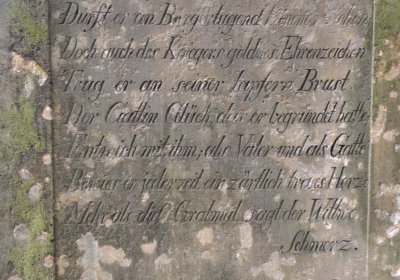 Durft er am Berge Tugend
Doch auch des Kriegers goldnes Ehrenzeichen
Trug er an seiner tapfern Brust
Der Gattin Glück, das er begründet hatte,
Entwich mit ihm; als Vater und als Gatte
Bewies er jederzeit ein zärtlich treues Herz;
Mehr als dies Grabmal sagt der Witwe
Schmerz.